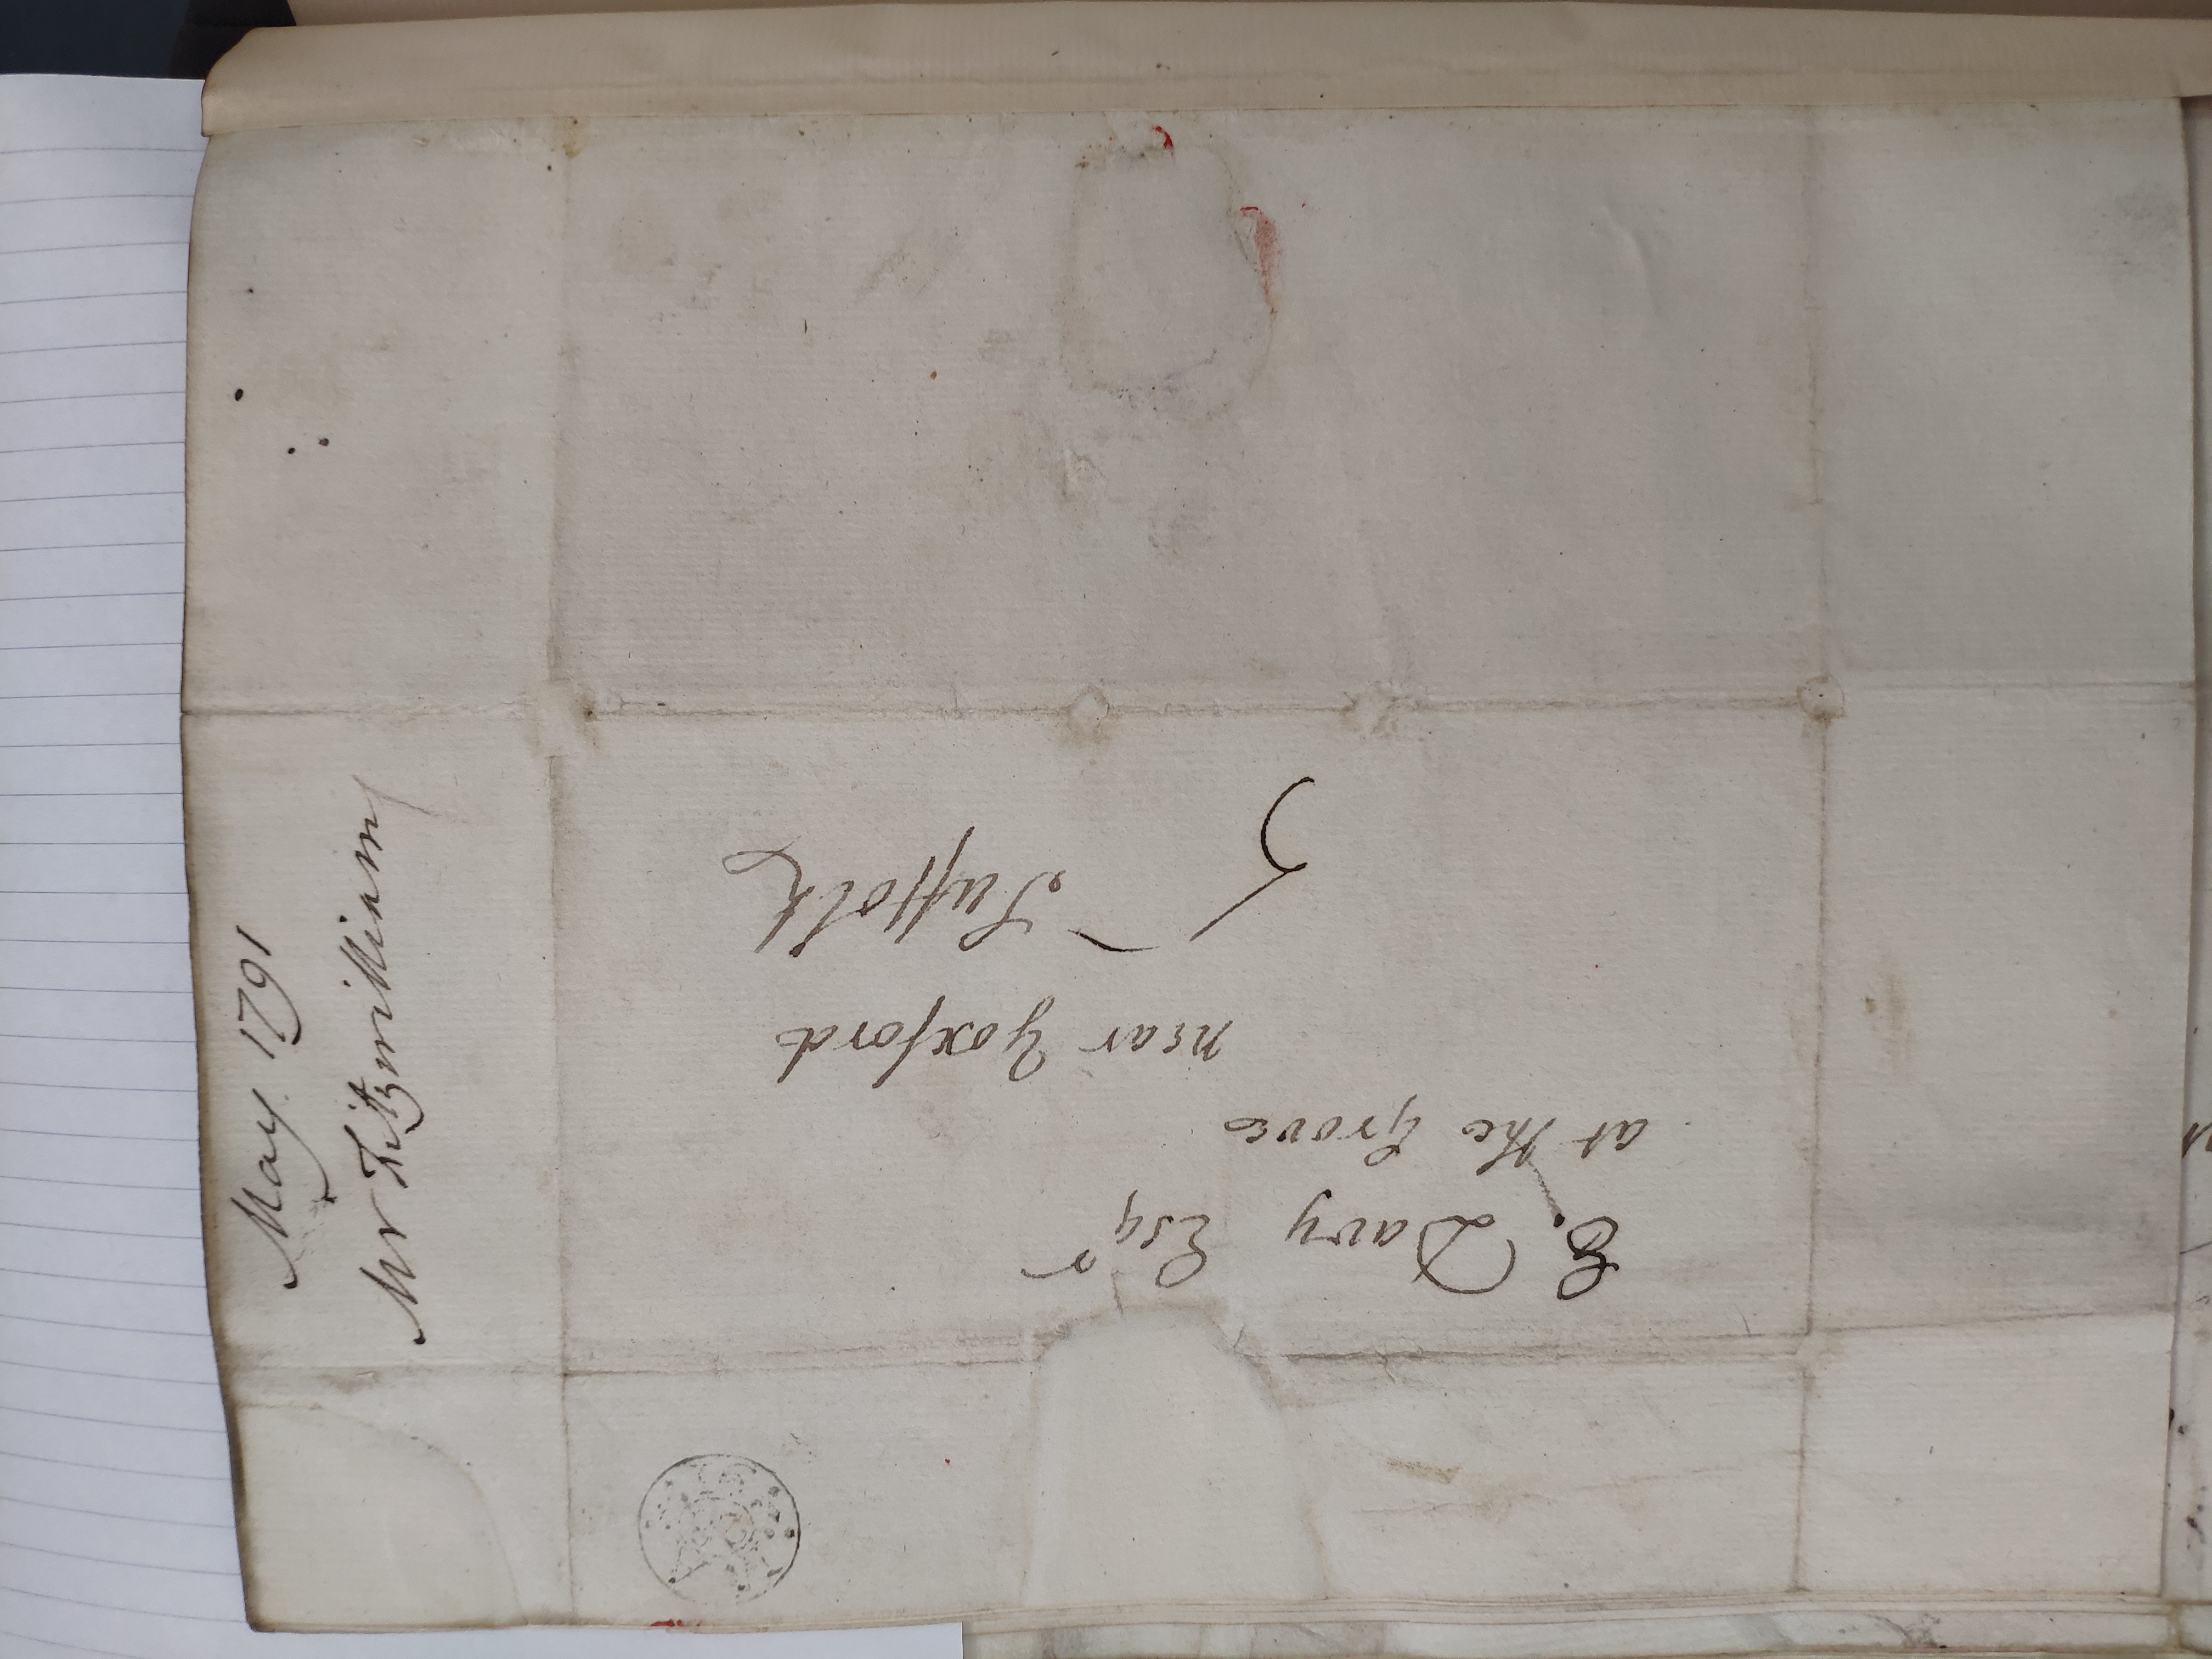 E. Davy Esqr
at the Grove
near Yoxford
Suffolk
5
May 1791
Mr Fitzwilliam